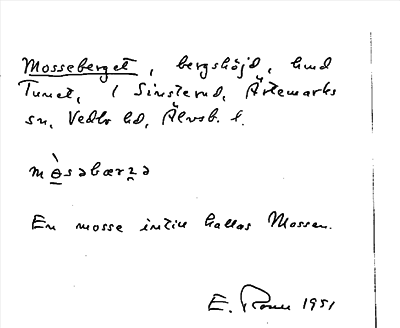 Mosseberget, bergshöjd, hmd
Tunet, 1 Sinsterud, Ärtemarks
sn, Vedbo hd, Älvsb. l.
En mosse intill kallas Mossen.
E. 1951